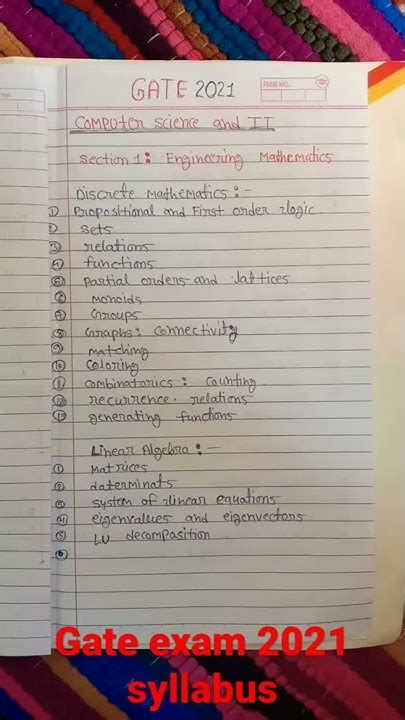 GATE 2021
PAGE NO.
Computer science and IT
Section 1: Engineering Mathematics
Discrete mathematics:-
① Propositional and First order logic.
② sets
③ relations
④ functions
⑤ partial orders and lattices
⑥ monoids
⑦ Groups
⑧ Graphs: connectivity
⑨ matching
⑩ coloring
⑪ combinatorics: counting.
⑫ recurrence relations
⑬ generating functions
Linear Algebra:-
① Matrices
② daterminats
③ system of linear equations
④ eigenvalues and eigenvectors
⑤ LU decomposition
⑥
Gate exam 2021
syllabus